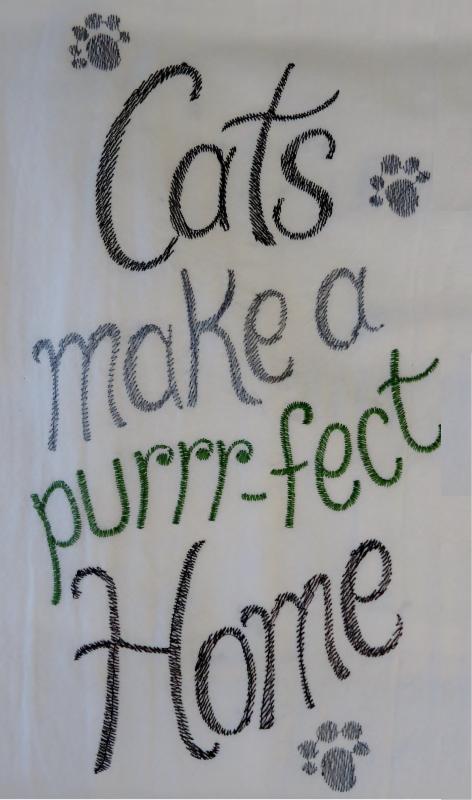 Cats
make a
purrr-fect
Home